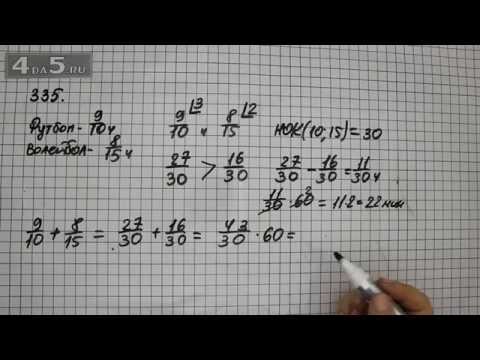 4DA5.RU
335.
Футбол - 9/10 ч
Волейбол - 8/15 ч
9/10 ⌊3 и 8/15 ⌊2 НОК(10;15)=30
27/30 > 16/30 27/30 - 16/30 = 11/30 ч
11/30 · 60 2 = 11·2 = 22 мин
9/10 + 8/15 = 27/30 + 16/30 = 43/30 · 60 =